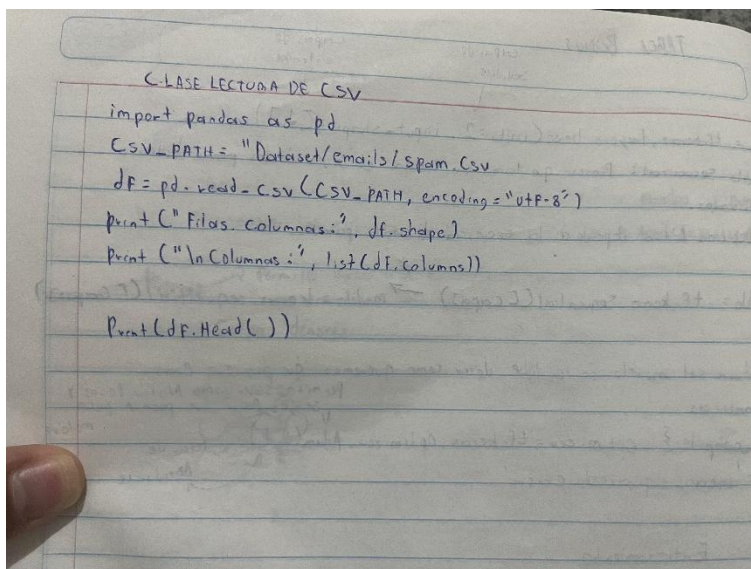 CLASE LECTURA DE CSV
import pandas as pd
CSV_PATH = "Dataset/emails/spam.csv
df = pd.read_csv (CSV_PATH, encoding = "utf-8")
print ("Filas. Columnas:", df.shape)
Print ("\n Columnas:", list(df.columns))
Print(df.Head())